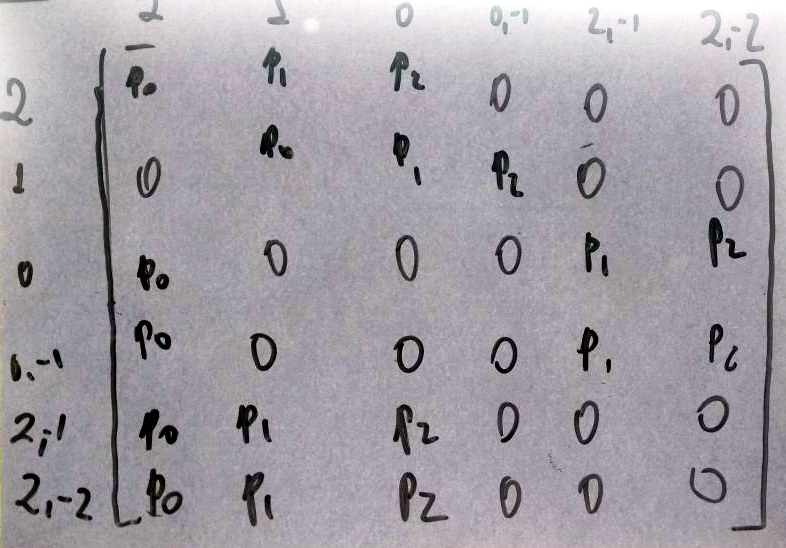 2 1 0 0,-1 2,-1 2,-2
2 p₀ p₁ p₂ 0 0 0
1 0 p₀ p₁ p₂ 0 0
0 p₀ 0 0 0 p₁ p₂
0,-1 p₀ 0 0 0 p₁ p₂
2,-1 p₀ p₁ p₂ 0 0 0
2,-2 p₀ p₁ p₂ 0 0 0